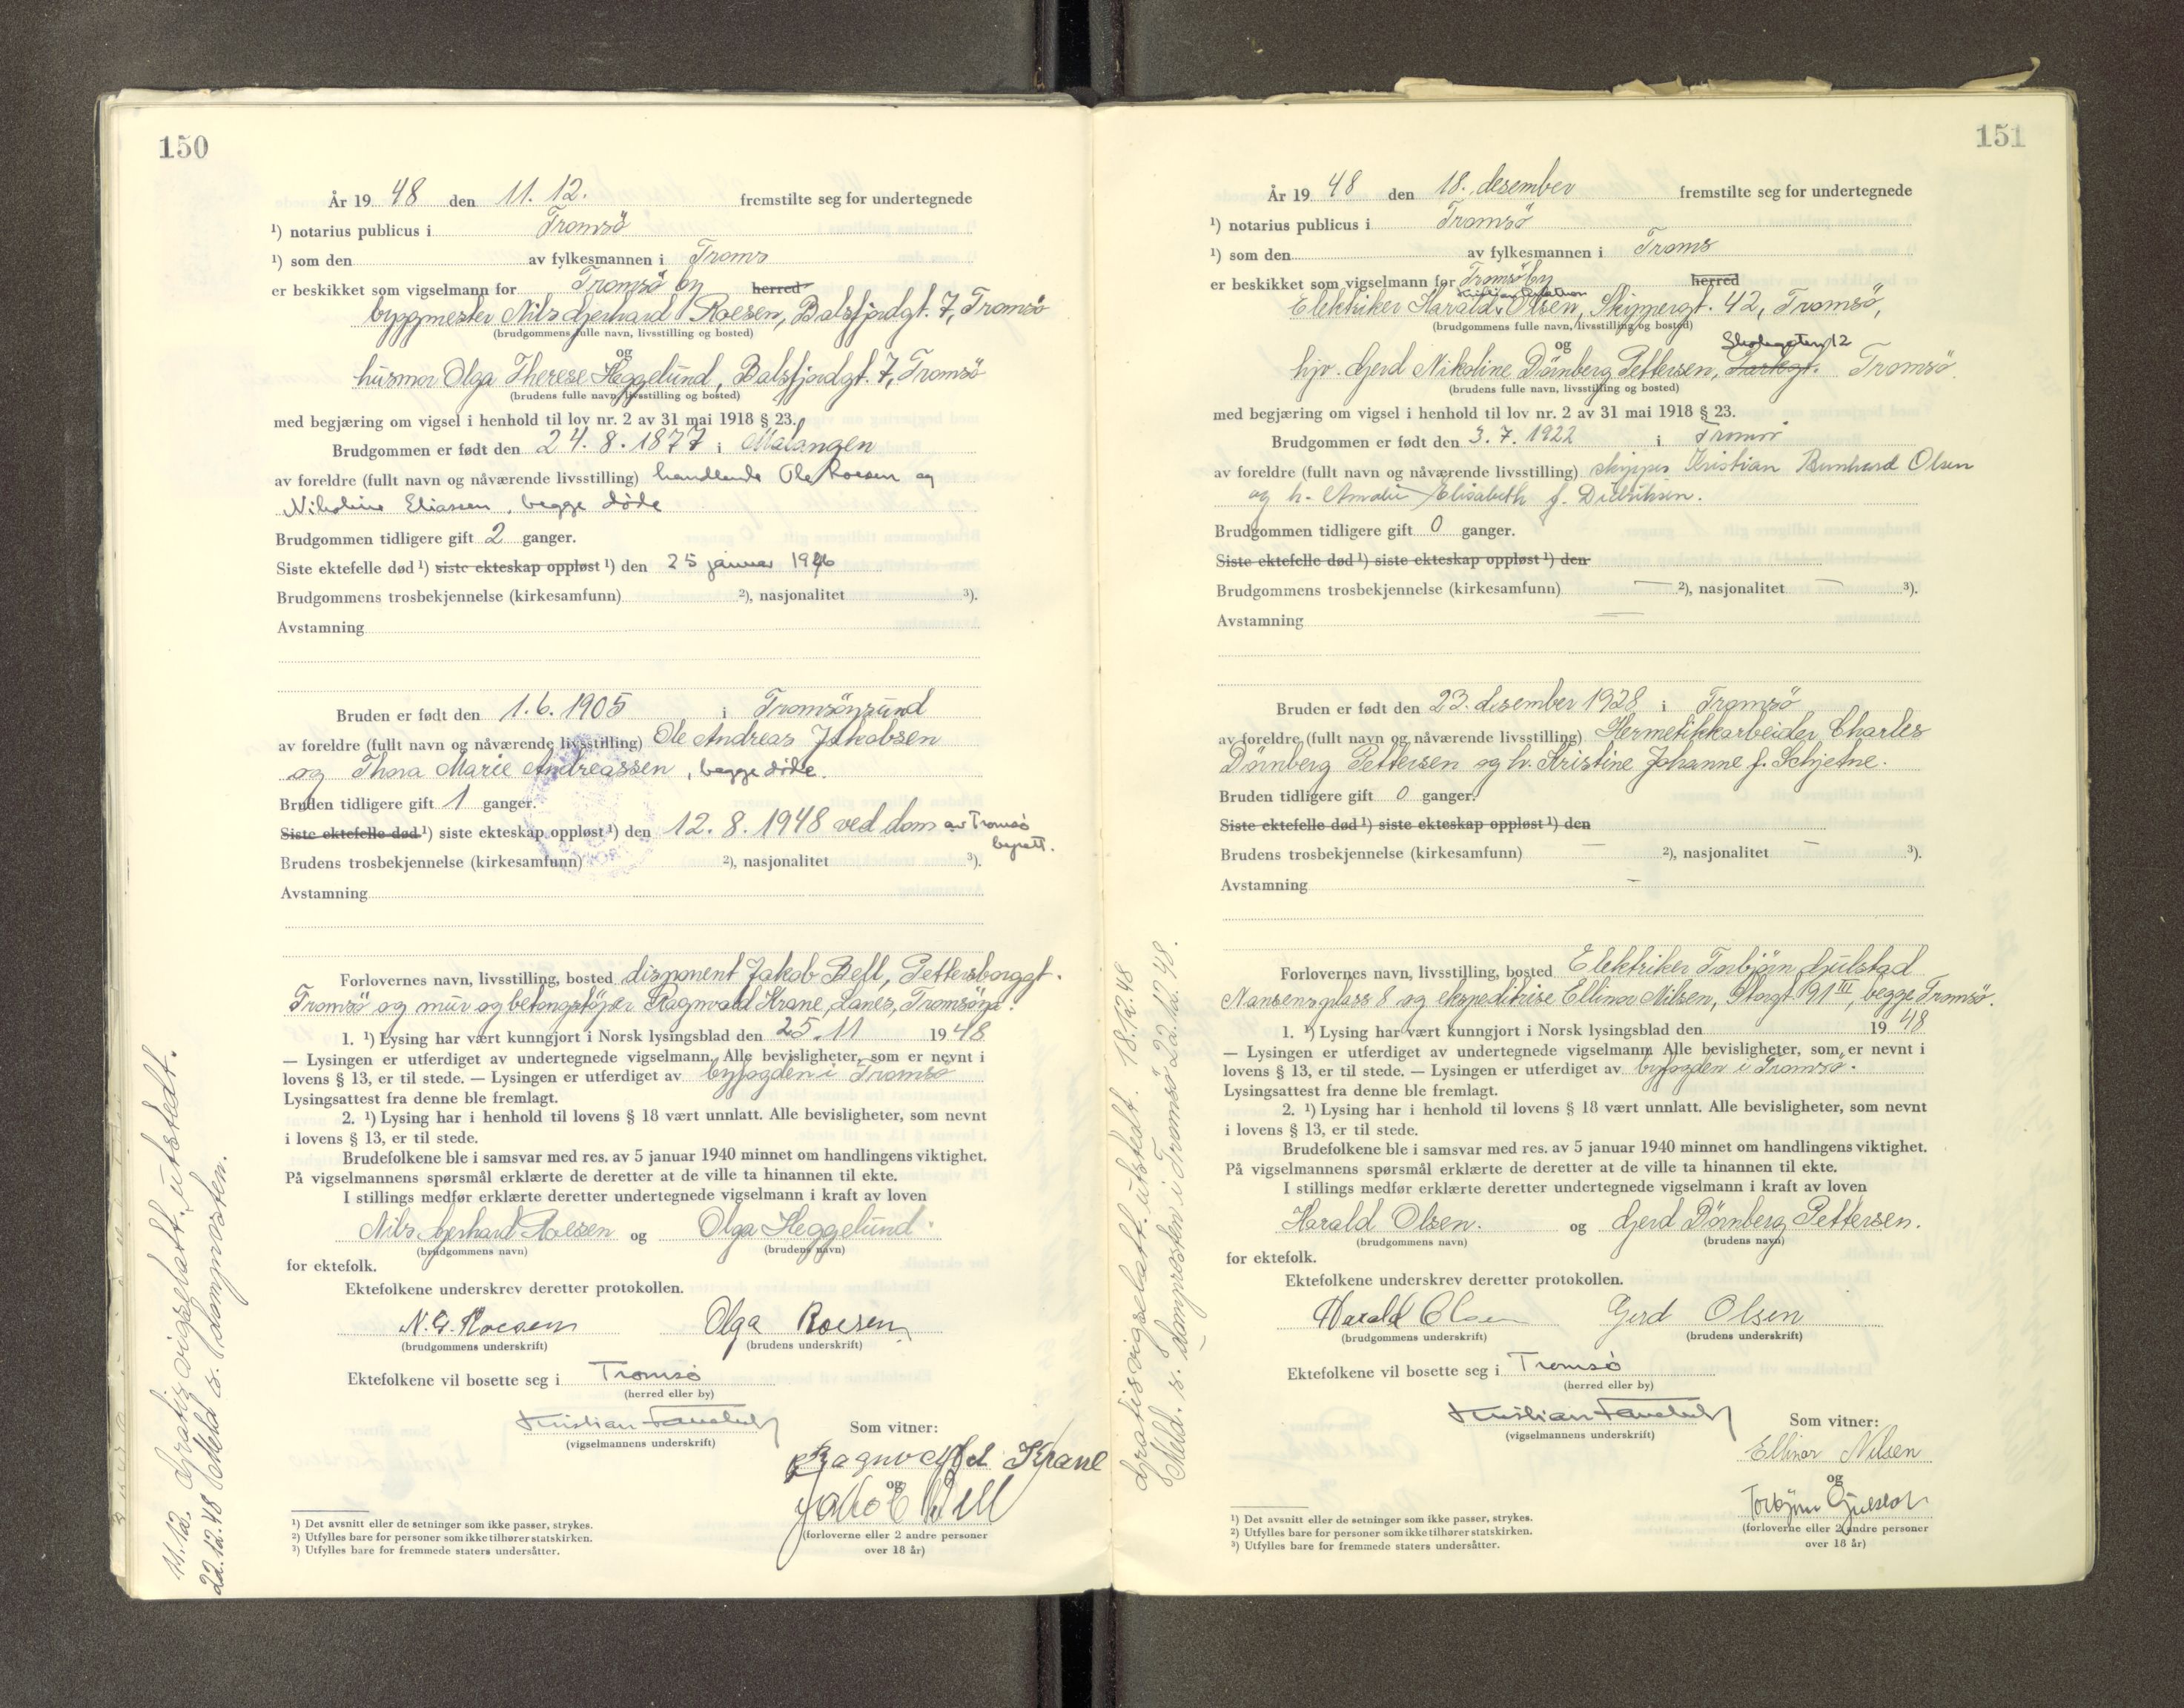 150
År 19 48 den 11. 12. fremstilte seg for undertegnede
¹) notarius publicus i Tromsö
¹) som den av fylkesmannen i Troms
er beskikket som vigselmann for Tromsö by herred
byggmester Nils Gerhard Roesen, Balsfjordgt. 7, Tromsö
(brudgommens fulle navn, livsstilling og bosted)
og
husmor Olga Therese Heggelund, Balsfjordgt. 7, Tromsö
(brudens fulle navn, livsstilling og bosted)
med begjæring om vigsel i henhold til lov nr. 2 av 31 mai 1918 § 23.
Brudgommen er født den 24. 8. 1877 i Malangen
av foreldre (fullt navn og nåværende livsstilling) handlende Ole Roesen og
Nikoline Eliassen, begge døde
Brudgommen tidligere gift 2 ganger.
Siste ektefelle død ¹) siste ekteskap oppløst ¹) den 25 januar 1946
Brudgommens trosbekjennelse (kirkesamfunn) ²), nasjonalitet ³).
Avstamning
Bruden er født den 1. 6. 1905 i Tromsöysund
av foreldre (fullt navn og nåværende livsstilling) Ole Andreas Jakobsen
og Thora Marie Andreassen, begge døde.
Bruden tidligere gift 1 ganger.
Siste ektefelle død ¹) siste ekteskap oppløst ¹) den 12. 8. 1948 ved dom av Tromsø
byrett.
Brudens trosbekjennelse (kirkesamfunn) ²), nasjonalitet ³).
Avstamning
Forlovernes navn, livsstilling, bosted disponent Jakob Bell, Pettersborggt.
Tromsö og mur og betongstöper Ragnvald Krane, Lanes, Tromsöya.
1. ¹) Lysing har vært kunngjort i Norsk lysingsblad den 25. 11 19 48
— Lysingen er utferdiget av undertegnede vigselmann. Alle bevisligheter, som er nevnt i
lovens § 13, er til stede. — Lysingen er utferdiget av byfogden i Tromsö
Lysingsattest fra denne ble fremlagt.
2. ¹) Lysing har i henhold til lovens § 18 vært unnlatt. Alle bevisligheter, som nevnt
i lovens § 13, er til stede.
Brudefolkene ble i samsvar med res. av 5 januar 1940 minnet om handlingens viktighet.
På vigselmannens spørsmål erklærte de deretter at de ville ta hinannen til ekte.
I stillings medfør erklærte deretter undertegnede vigselmann i kraft av loven
Nils Gerhard Roesen og Olga Heggelund
(brudgommens navn) (brudens navn)
for ektefolk.
Ektefolkene underskrev deretter protokollen.
N. G. Roesen Olga Roesen
(brudgommens underskrift) (brudens underskrift)
Ektefolkene vil bosette seg i Tromsø
(herred eller by)
Kristian
(vigselmannens underskrift)
Som vitner:
Ragnvald Krane
og
Jakob Bell
(forloverne eller 2 andre personer
over 18 år)
¹) Det avsnitt eller de setninger som ikke passer, strykes.
²) Utfylles bare for personer som ikke tilhører statskirken.
³) Utfylles bare for fremmede staters undersåtter.
11.12. Gratis vigselatt. utstedt.
22.12.48 Meld. s. domprosten.
151
År 19 48 den 18. desember fremstilte seg for undertegnede
¹) notarius publicus i Tromsö
¹) som den av fylkesmannen i Troms
er beskikket som vigselmann for Tromsö by herred
Elektriker Harald Olsen, Skippergt. 42, Tromsö,
(brudgommens fulle navn, livsstilling og bosted)
og
Skolegaten 12
hjv. Gerd Nikoline Dörnberg Pettersen, Parkgt. Tromsö.
(brudens fulle navn, livsstilling og bosted)
med begjæring om vigsel i henhold til lov nr. 2 av 31 mai 1918 § 23.
Brudgommen er født den 3. 7. 1922 i Tromsø
av foreldre (fullt navn og nåværende livsstilling) skipper Kristian Bernhard Olsen
og h. Amalie Elisabeth f. Didriksen.
Brudgommen tidligere gift 0 ganger.
Siste ektefelle død ¹) siste ekteskap oppløst ¹) den
Brudgommens trosbekjennelse (kirkesamfunn) — ²), nasjonalitet — ³).
Avstamning —
Bruden er født den 23. desember 1928 i Tromsö
av foreldre (fullt navn og nåværende livsstilling) Hermetikkarbeider Charles
Dörnberg Pettersen og h. Kristine Johanne f. Schjetne.
Bruden tidligere gift 0 ganger.
Siste ektefelle død ¹) siste ekteskap oppløst ¹) den
Brudens trosbekjennelse (kirkesamfunn) — ²), nasjonalitet — ³).
Avstamning —
Forlovernes navn, livsstilling, bosted Elektriker Torbjörn Gjulstad
Nansens plass 8 og ekspeditrise Ellinor Nilsen, Storgt 91 III, begge Tromsö.
1. ¹) Lysing har vært kunngjort i Norsk lysingsblad den 19 48
— Lysingen er utferdiget av undertegnede vigselmann. Alle bevisligheter, som er nevnt i
lovens § 13, er til stede. — Lysingen er utferdiget av byfogden i Tromsö.
Lysingsattest fra denne ble fremlagt.
2. ¹) Lysing har i henhold til lovens § 18 vært unnlatt. Alle bevisligheter, som nevnt
i lovens § 13, er til stede.
Brudefolkene ble i samsvar med res. av 5 januar 1940 minnet om handlingens viktighet.
På vigselmannens spørsmål erklærte de deretter at de ville ta hinannen til ekte.
I stillings medfør erklærte deretter undertegnede vigselmann i kraft av loven
Harald Olsen. og Gerd Dörnberg Pettersen.
(brudgommens navn) (brudens navn)
for ektefolk.
Ektefolkene underskrev deretter protokollen.
Harald Olsen Gerd Olsen
(brudgommens underskrift) (brudens underskrift)
Ektefolkene vil bosette seg i Tromsø
(herred eller by)
Kristian
(vigselmannens underskrift)
Som vitner:
Ellinor Nilsen
og
Torbjörn
(forloverne eller 2 andre personer
over 18 år)
¹) Det avsnitt eller de setninger som ikke passer, strykes.
²) Utfylles bare for personer som ikke tilhører statskirken.
³) Utfylles bare for fremmede staters undersåtter.
Gratis vigselatt. utstedt. 18.12.48
Meld. s. domprosten i Tromsö 22.12.48.